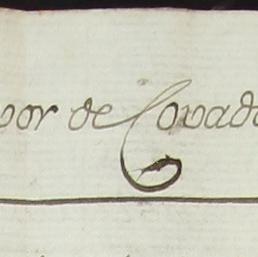 vor de Covado